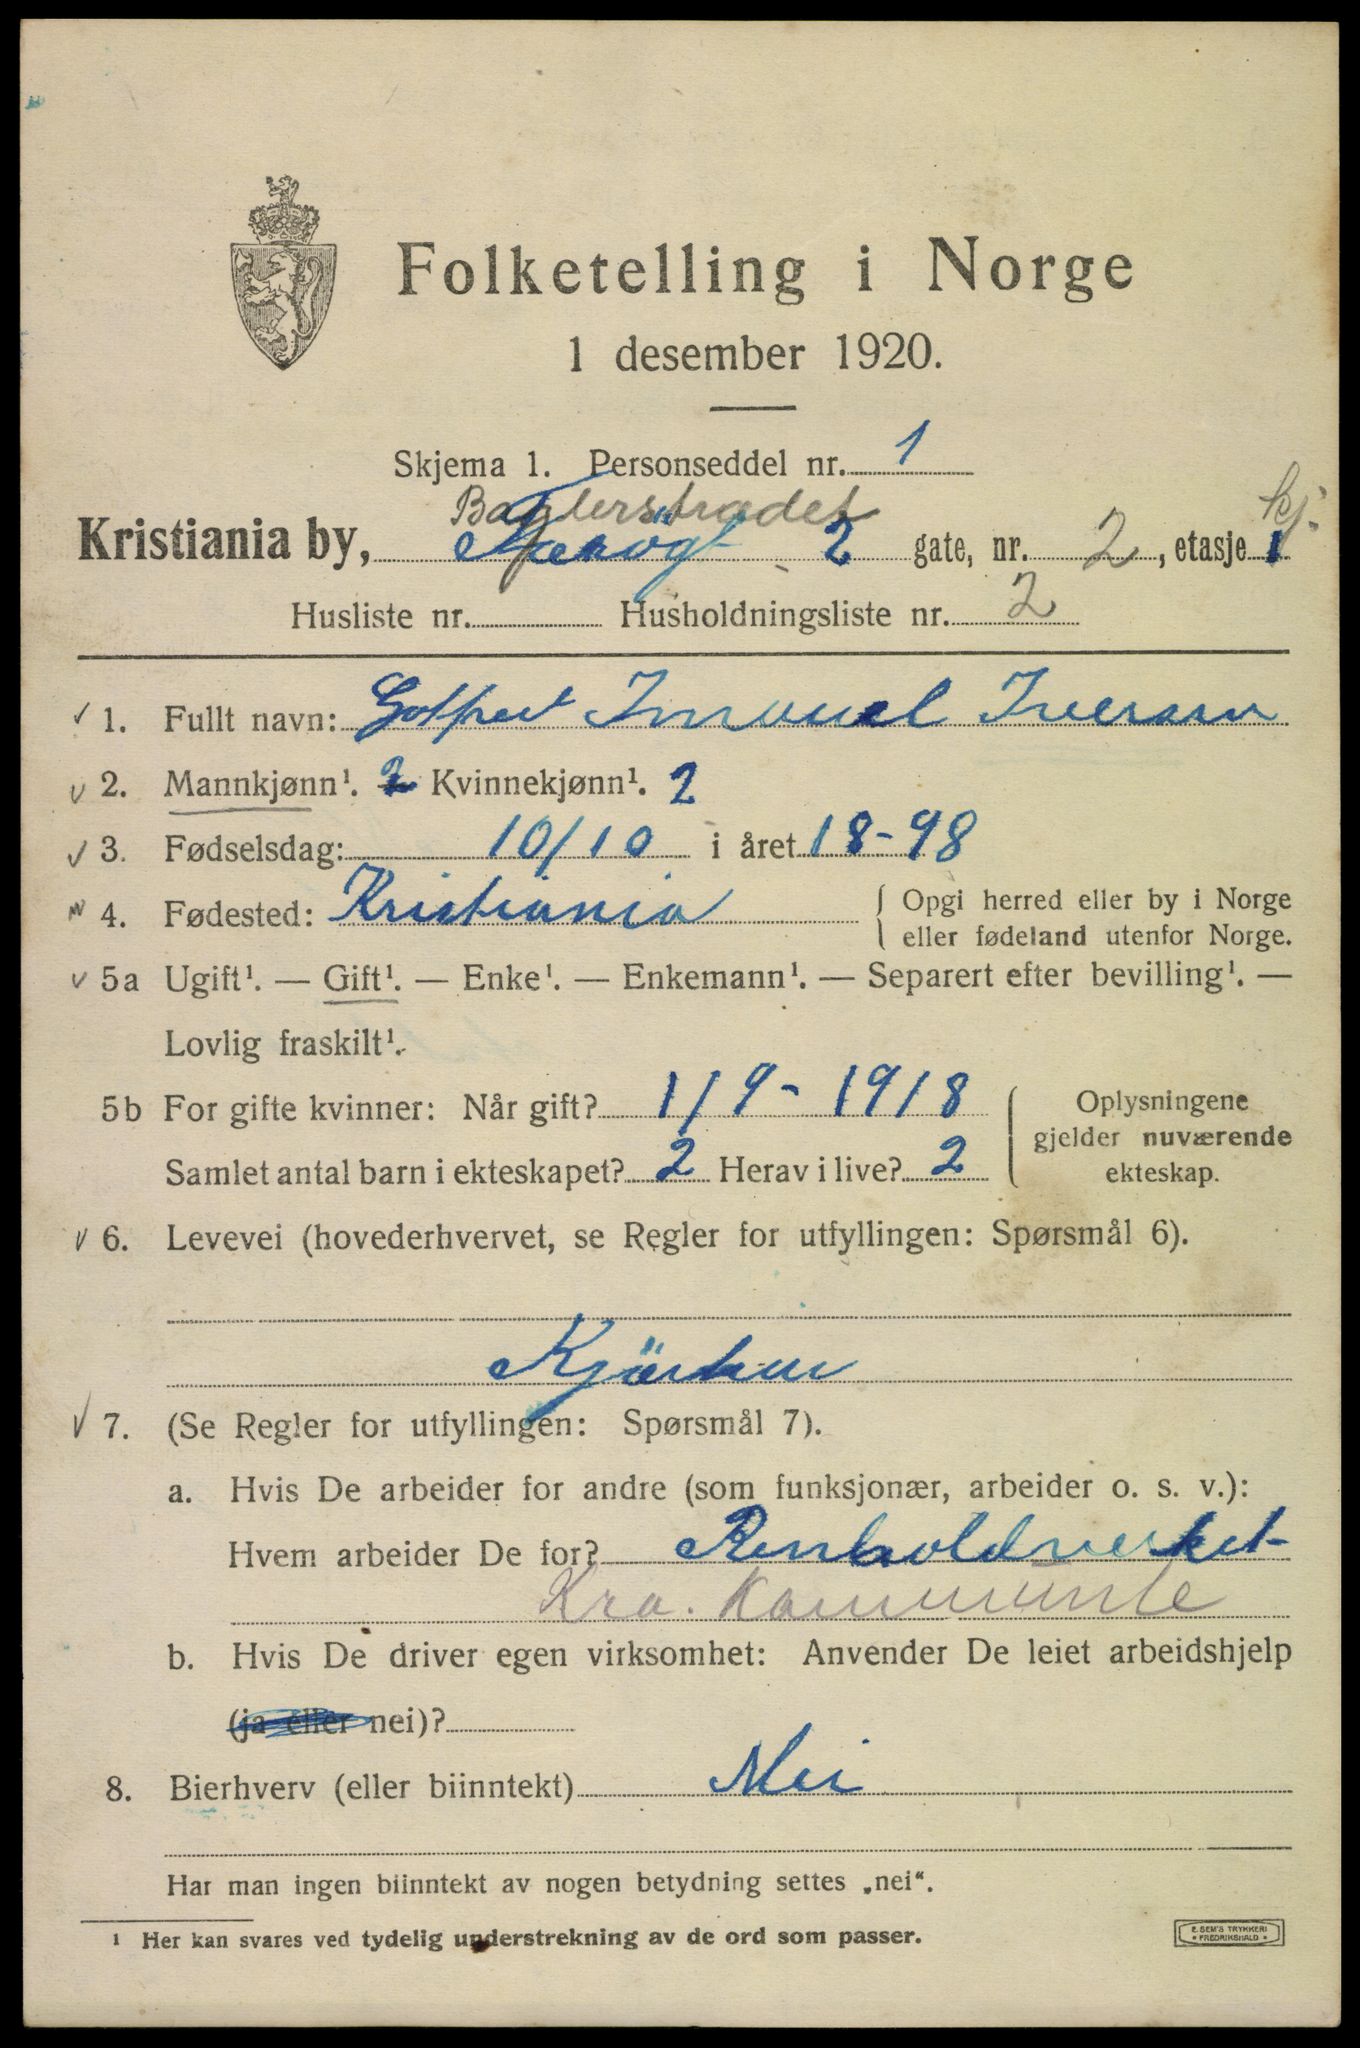 Folketelling i Norge
1 desember 1920.
Skjema 1. Personseddel nr. 1
Baglerstradet kj.
Kristiania by, 2 gate, nr. 2, etasje 1
Husliste nr. Husholdningsliste nr. 2
1. Fullt navn: Gotfret Imanuel Iversen
2. Mannkjønn¹. 2 Kvinnekjønn¹. 2
3. Fødselsdag: 10/10 i året 18-98
4. Fødested: Kristiania { Opgi herred eller by i Norge
eller fødeland utenfor Norge.
5a Ugift¹. — Gift¹. — Enke¹. — Enkemann¹. — Separert efter bevilling¹. —
Lovlig fraskilt¹.
5b For gifte kvinner: Når gift? 1/9-1918 { Oplysningene
gjelder nuværende
Samlet antal barn i ekteskapet? 2 Herav i live? 2 ekteskap.
6. Levevei (hovederhvervet, se Regler for utfyllingen: Spørsmål 6).
Kjörkar
7. (Se Regler for utfyllingen: Spørsmål 7).
a. Hvis De arbeider for andre (som funksjonær, arbeider o. s. v.):
Hvem arbeider De for? Renholdverket
Kra. Kommune
b. Hvis De driver egen virksomhet: Anvender De leiet arbeidshjelp
(ja eller nei)?
8. Bierhverv (eller biinntekt) Nei
Har man ingen biinntekt av nogen betydning settes „nei“.
¹ Her kan svares ved tydelig understrekning av de ord som passer.
E. SEM'S TRYKKERI
• FREDRIKSHALD •